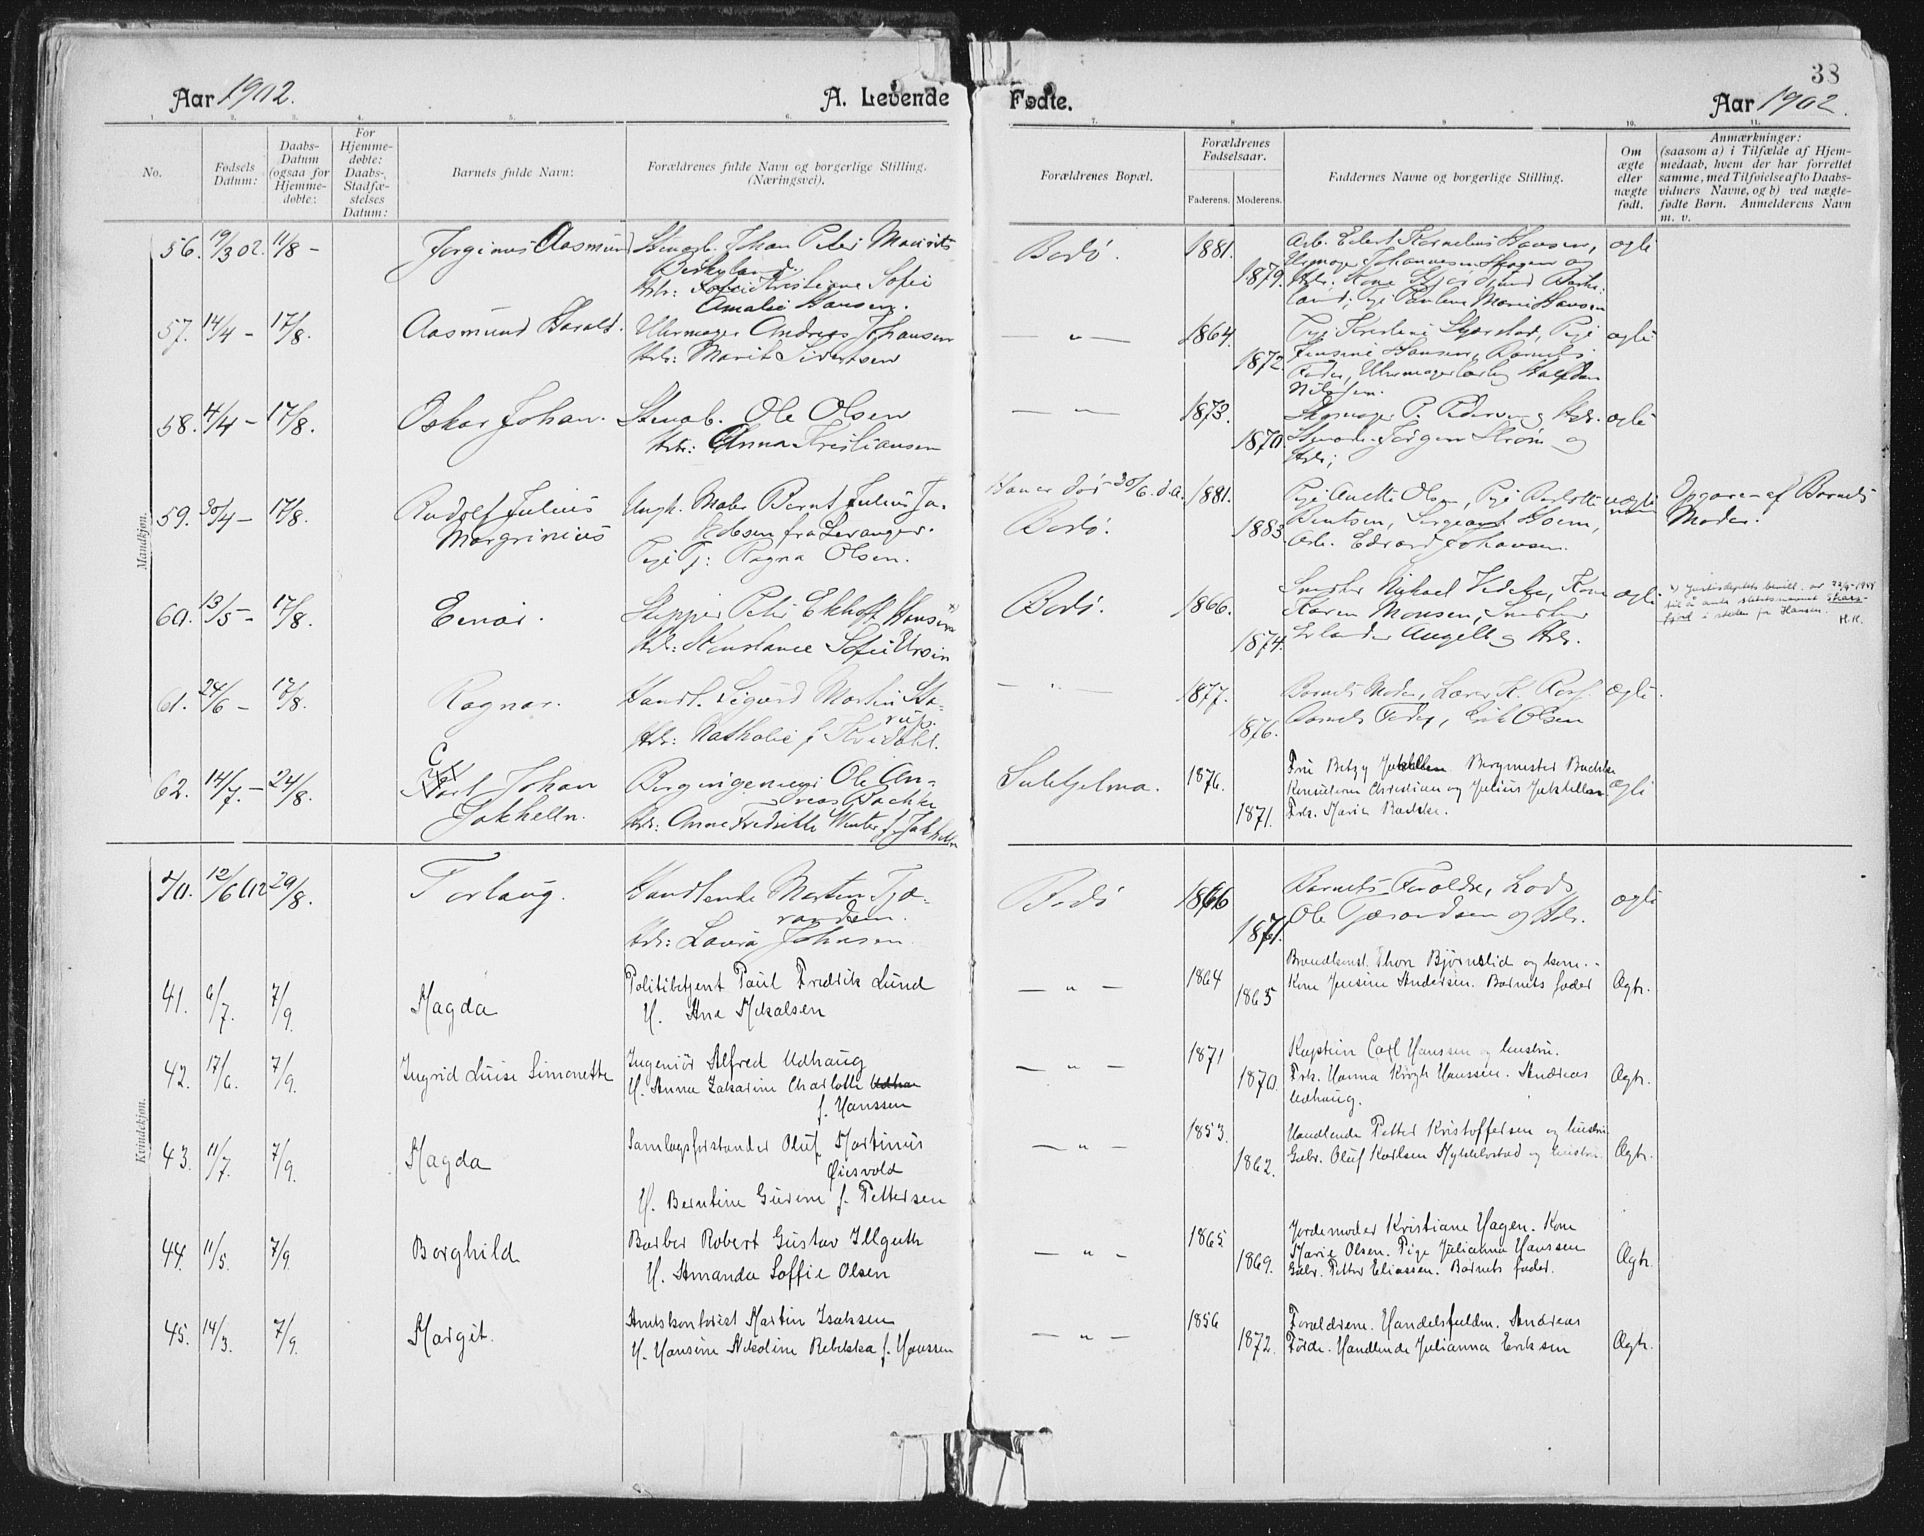 38
Aar 1902.
A. Levende
Fødte.
Aar 1902.
1. 2. 3. 4. 5. 6. 7. 8 9 10. 11.
No.
Fødsels Datum:
Daabs-Datum (ogsaa for Hjemme-døbte:
For Hjemme-døbte: Daabs-, Stadfæ-stelses Datum:
Barnets fulde Navn:
Forældrenes fulde Navn og borgerlige Stilling. (Næringsvei).
Forældrenes Bopæl.
Forældrenes Fødselsaar.
Faderens. Moderens.
Faddernes Navne og borgerlige Stilling.
Om ægte eller uægte født.
Anmærkninger: (saasom a) i Tilfælde af Hjem-medaab, hvem der har forrettet samme, med Tilføielse af to Daabs-vidners Navne, og b) ved uægte-fødte Børn. Anmelderens Navn m. v.
Mandkjøn.
56. 19/3 02. 11/8 - Jorginus Aasmund Stenarb. Johan Peter Mauritz
Birkeland.
Hstr: Kristiane Sofie
Amalie Hansen.
Bodø. 1881. 1879.
Arb. Edert Kornelius Hansen,
ægte
57. 14/4 - 17/8. Aasmund Harald. Uhrmager Andreas Johansen
Hstr: Marit Sivertsen
— " — 1864. 1872.
Jensine Hansen, Barnets
Fader, Uhrmagerlærling Halfdan
Nilsen.
ægte
58. 4/4 - 17/8. Oskar Johan. Stenarb. Ole Olsen
Hstr: Anna Kristiansen
— " — 1873. 1870.
Skomager P. Pedersen og Hstr.
Stenarb. Jørgen Strøm og
Hstr;
ægte
59. 30/4 - 17/8. Rudolf Julius
Margrinius
Ungk. Maler Bernt Julius Ja-
kobsen fra Levanger.
Pige Tj: Ragna Olsen.
Bodø. 1881. 1883.
Pige Anette Olsen, Pige
Berntsen, Sergeant Hoem,
Arb. Edvard Johansen.
uægte
Opgave af Barnets
Moder.
60. 13/5 - 17/8. Einar. Skipper Peter Ekhoff Hansen
Hstr: Konstance Sofie Ursin
Bodø. 1866. 1874.
Karen Monsen, Snedker
Erlander Angell og Hstr.
ægte
61. 24/6 - 17/8. Ragnar. Handl. Sigurd Martin
Hstr: Nathalie f. Kvidahl.
— " — 1877. 1876.
Barnets Moder, Lærer K.
Barnets Fader, Erik Olsen
ægte
62. 14/7. - 24/8. Carl Johan
Jakhelln.
Bergingeniør Ole An-
dreas Bachke
Hstr: Anne Fredrikke Winter f. Jakhelln
Sulitjelma. 1876. 1871.
Fru Betzy Jakhelln Bergmester Bachke
Konsulerne Christian og Julius Jakhelln
Frk. Maria Bachke.
ægte
Kvindekjøn.
40. 12/6 02 29/8. Torlaug. Handlende Morten Tjæ-
randsen.
Hstr: Laura Johnsen.
Bodø 1866 1871.
Barnets Foræld­re, Lods
Ole Tjærandsen og Hstr.
ægte
41. 6/7. 7/9. Magda Politibetjent Paul Fredrik Lund
H. Ane Mikalsen
— " — 1864 1865
Brandkonst. Thor Bjørnslid og kone.
Kone Jensine Andersen. Barnets fader
Ægte.
42. 17/6. 7/9. Ingrid Luise Simonette Ingeniør Alfred Udhaug
H. Anna Zakarine Charlotte Udhau
f. Hanssen
— " — 1871 1870.
Kaptein Carl Hanssen og hustru.
Frk. Hanna Krogh Hanssen. Andreas
Udhaug.
Ægte.
43. 11/7. 7/9. Magda Samlagsforstander Oluf Martinus
Øiesvold
H. Berntine Gurine f. Pettersen
— " — 1853. 1862.
Handlende Petter Kristoffersen og hustru
Gbr. Oluf Karlsen Myklebostad og hustru.
Ægte.
44. 11/5. 7/9. Borghild Barber Robert Gustav Illguth
H. Amanda Soffie Olsen
— " — 1865 1869.
Jordemoder Kristiane Hagen. Kone
Marie Olsen. Pige Julianna Hanssen
Gbr. Petter Eliassen. Barnets fader.
Ægte.
45. 14/3. 7/9. Margit. Amtskontorist Martin Isaksen
H. Hansine Nikoline Rebekka f. Hanssen
— " — 1856 1872.
Forældrene. Handelsfuldm. Andreas
Førde. Handlende Julianna Eriksen
Ægte.